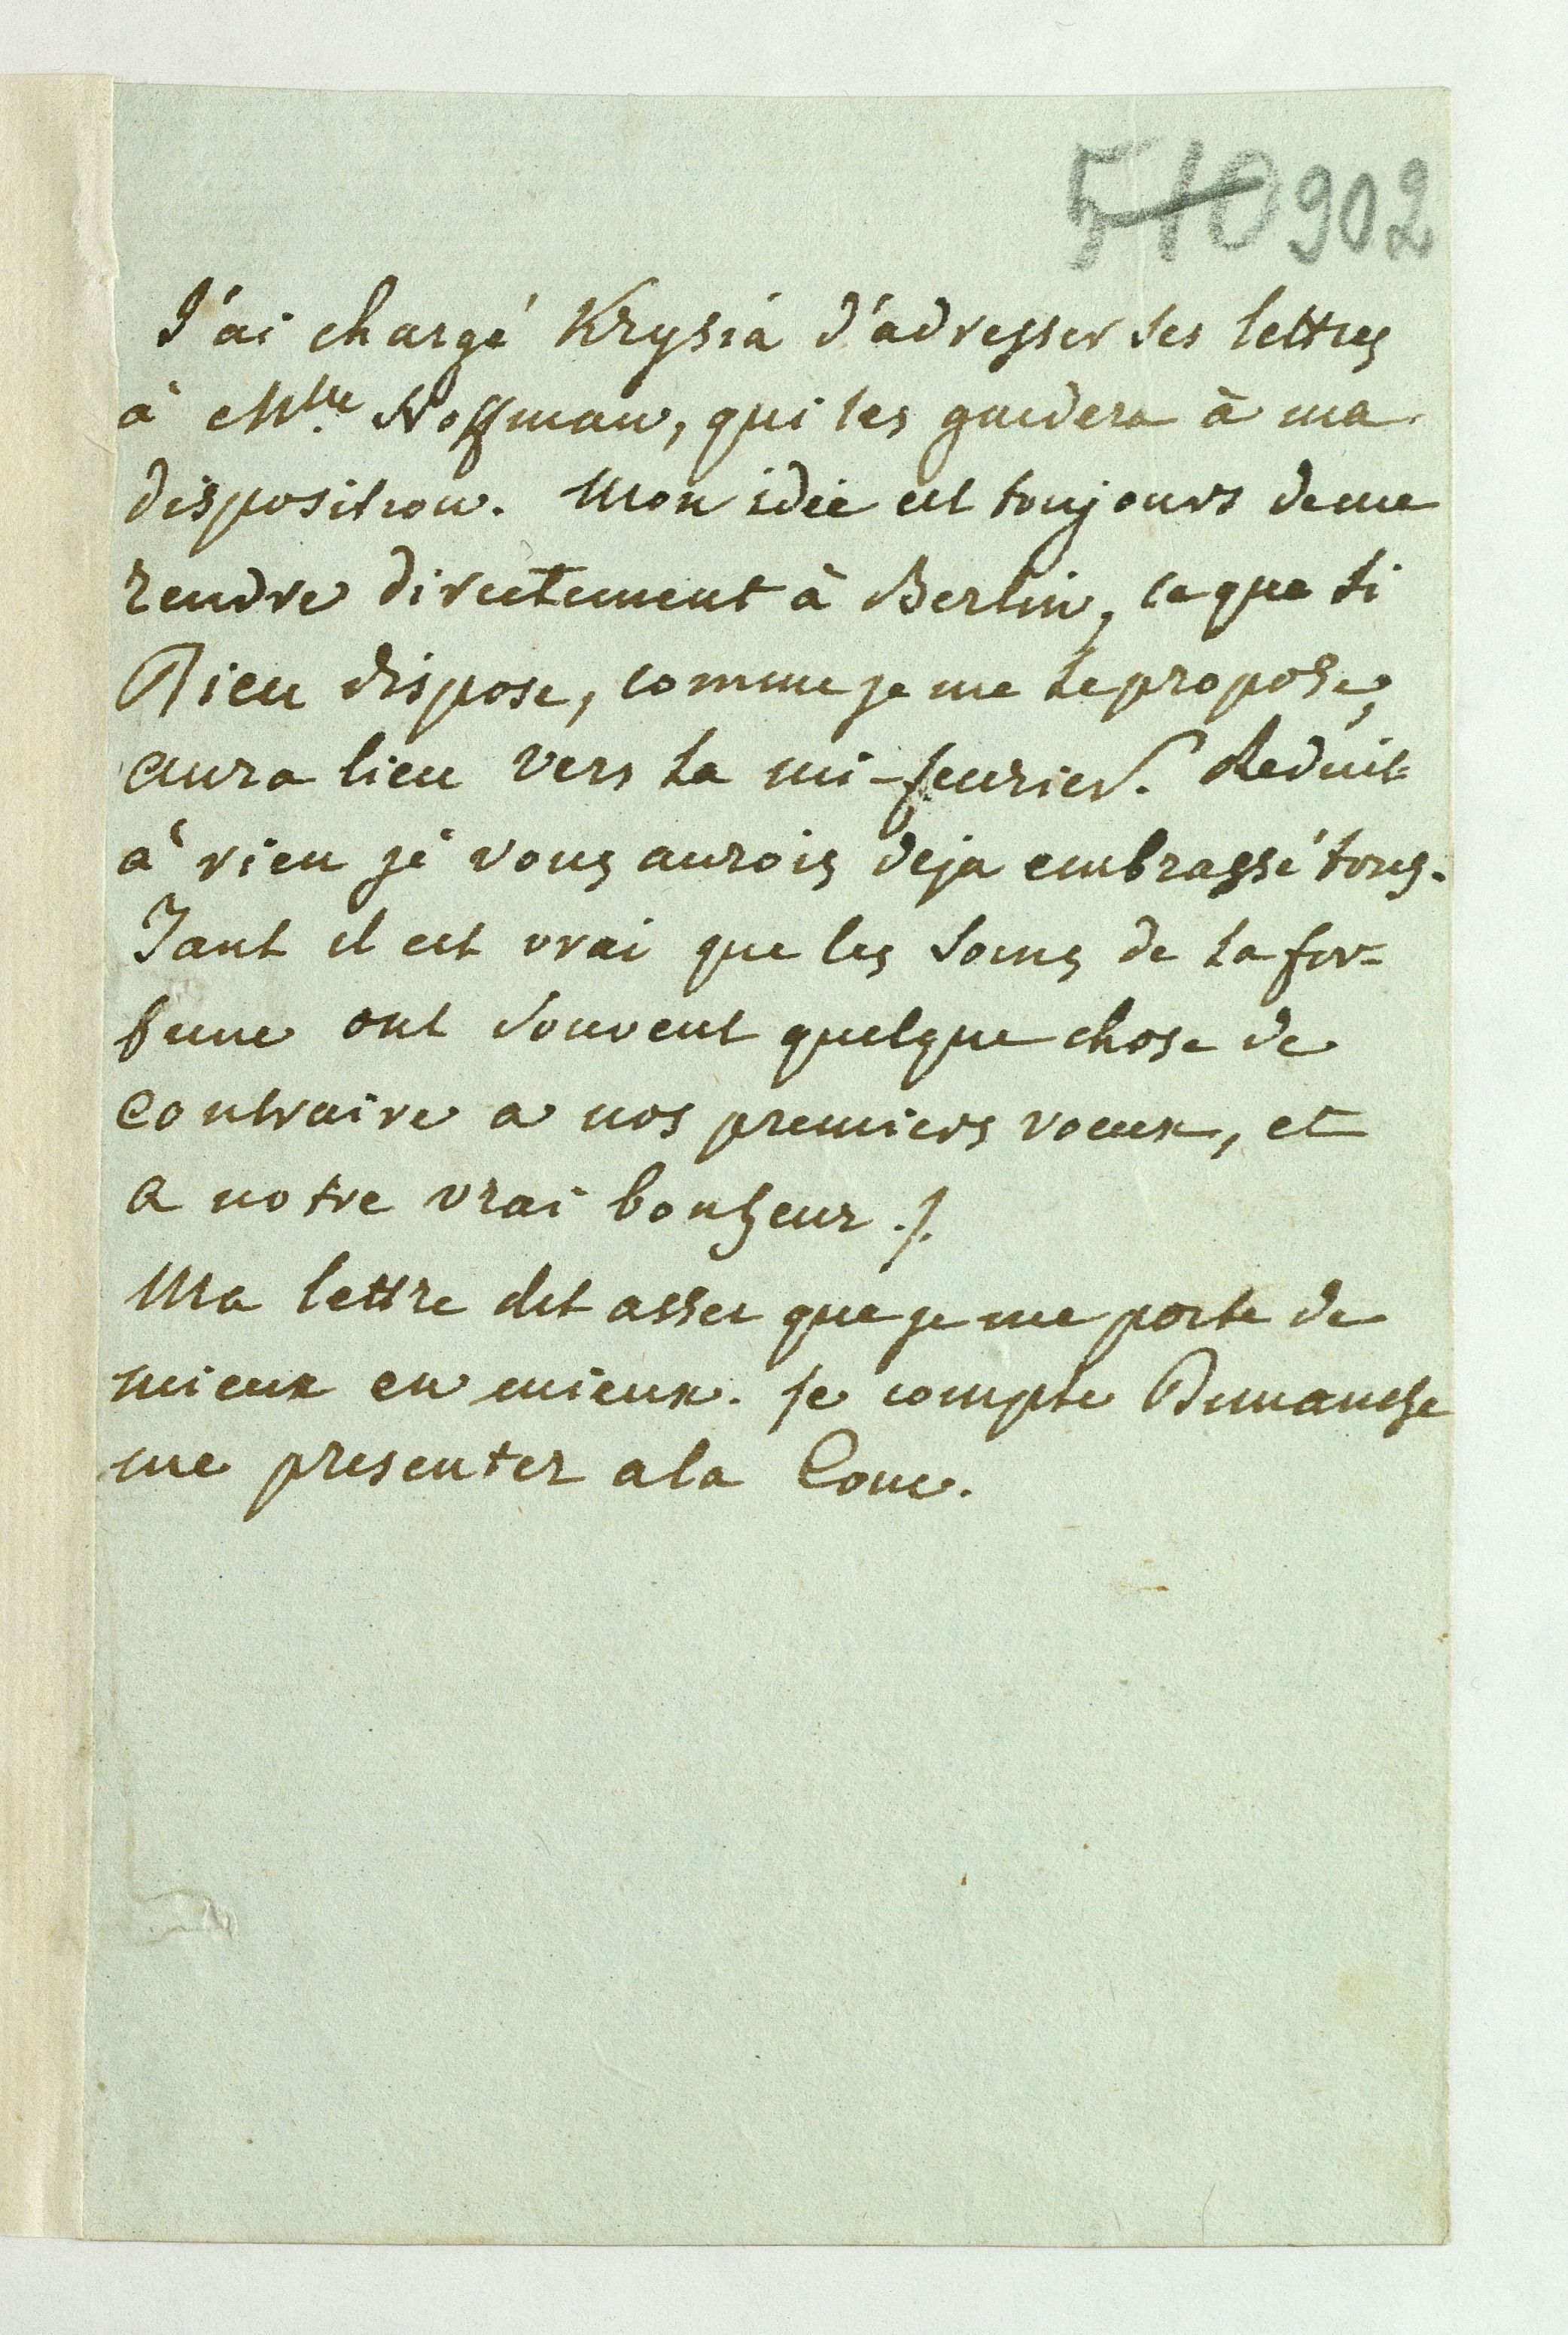 510 902
J'ai chargé Krysia d'adresser ses lettres
à Mlle Hoffman, qui les gardera à ma
disposition. Mon idée est toujours de me
rendre directement à Berlin, ce que si
Dieu dispose, comme je me le propose,
aura lieu vers la mi-fevrier. Reduit
à rien je vous aurois deja embrassé tous.
Tant il est vrai que les soins de la for=
tune ont souvent quelque chose de
contraire a nos premiers voeux, et
a notre vrai bonheur ./.
Ma lettre dit assez que je me porte de
mieux en mieux. Je compte Dimanche
me presenter a la Cour.